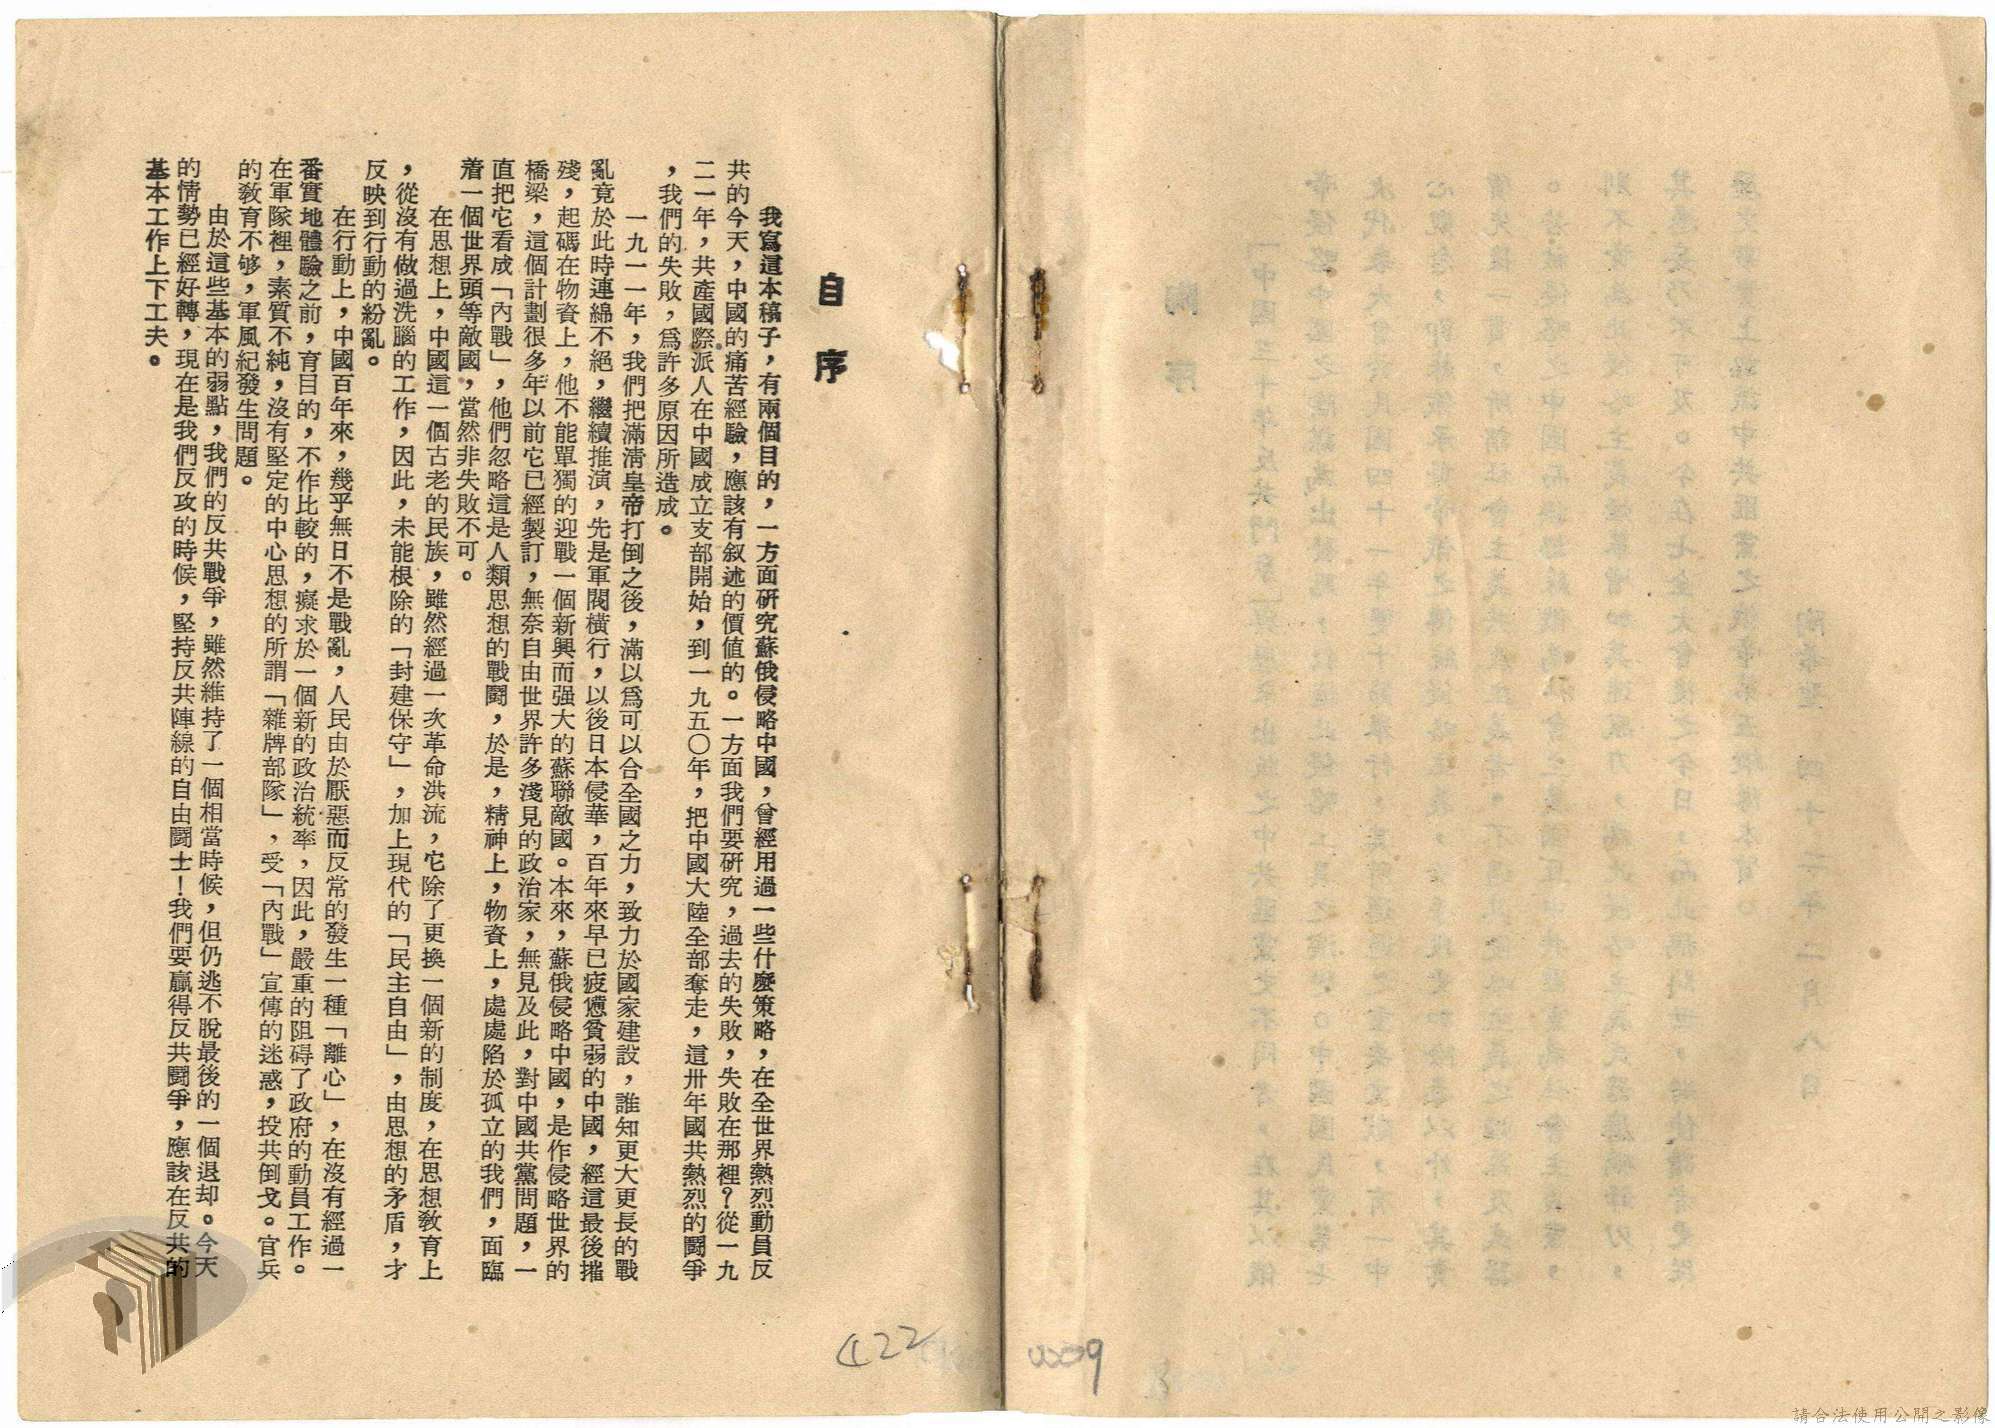 自序
我寫這本稿子，有兩個目的，一方面研究蘇俄侵略中國，曾經用過一些什麼策略，在全世界熱烈動員反
共的今天，中國的痛苦經驗，應該有敘述的價值的。一方面我們要研究，過去的失敗，失敗在那裡？從一九
二一年，共產國際派人在中國成立支部開始，到一九五〇年，把中國大陸全部奪走，這卅年國共熱烈的鬪爭
，我們的失敗，爲許多原因所造成。
一九一一年，我們把滿清皇帝打倒之後，滿以爲可以合全國之力，致力於國家建設，誰知更大更長的戰
亂竟於此時連綿不絕，繼續推演，先是軍閥橫行，以後日本侵華，百年來早已疲憊貧弱的中國，經這最後摧
殘，起碼在物資上，他不能單獨的迎戰一個新興而强大的蘇聯敵國。本來，蘇俄侵略中國，是作侵略世界的
橋梁，這個計劃很多年以前它已經製訂，無奈自由世界許多淺見的政治家，無見及此，對中國共黨問題，一
直把它看成「內戰」，他們忽略這是人類思想的戰鬪，於是，精神上，物資上，處處陷於孤立的我們，面臨
着一個世界頭等敵國，當然非失敗不可。
在思想上，中國這一個古老的民族，雖然經過一次革命洪流，它除了更換一個新的制度，在思想教育上
，從沒有做過洗腦的工作，因此，未能根除的「封建保守」，加上現代的「民主自由」，由思想的矛盾，才
反映到行動的紛亂。
在行動上，中國百年來，幾乎無日不是戰亂，人民由於厭惡而反常的發生一種「離心」，在沒有經過一
番實地體驗之前，盲目的，不作比較的，癡求於一個新的政治統率，因此，嚴重的阻碍了政府的動員工作。
在軍隊裡，素質不純，沒有堅定的中心思想的所謂「雜牌部隊」，受「內戰」宣傳的迷惑，投共倒戈。官兵
的教育不够，軍風紀發生問題。
由於這些基本的弱點，我們的反共戰爭，雖然維持了一個相當時候，但仍逃不脫最後的一個退却。今天
的情勢已經好轉，現在是我們反攻的時候，堅持反共陣線的自由鬪士！我們要贏得反共鬪爭，應該在反共的
基本工作上下工夫。
422
0009
請合法使用公開之影像